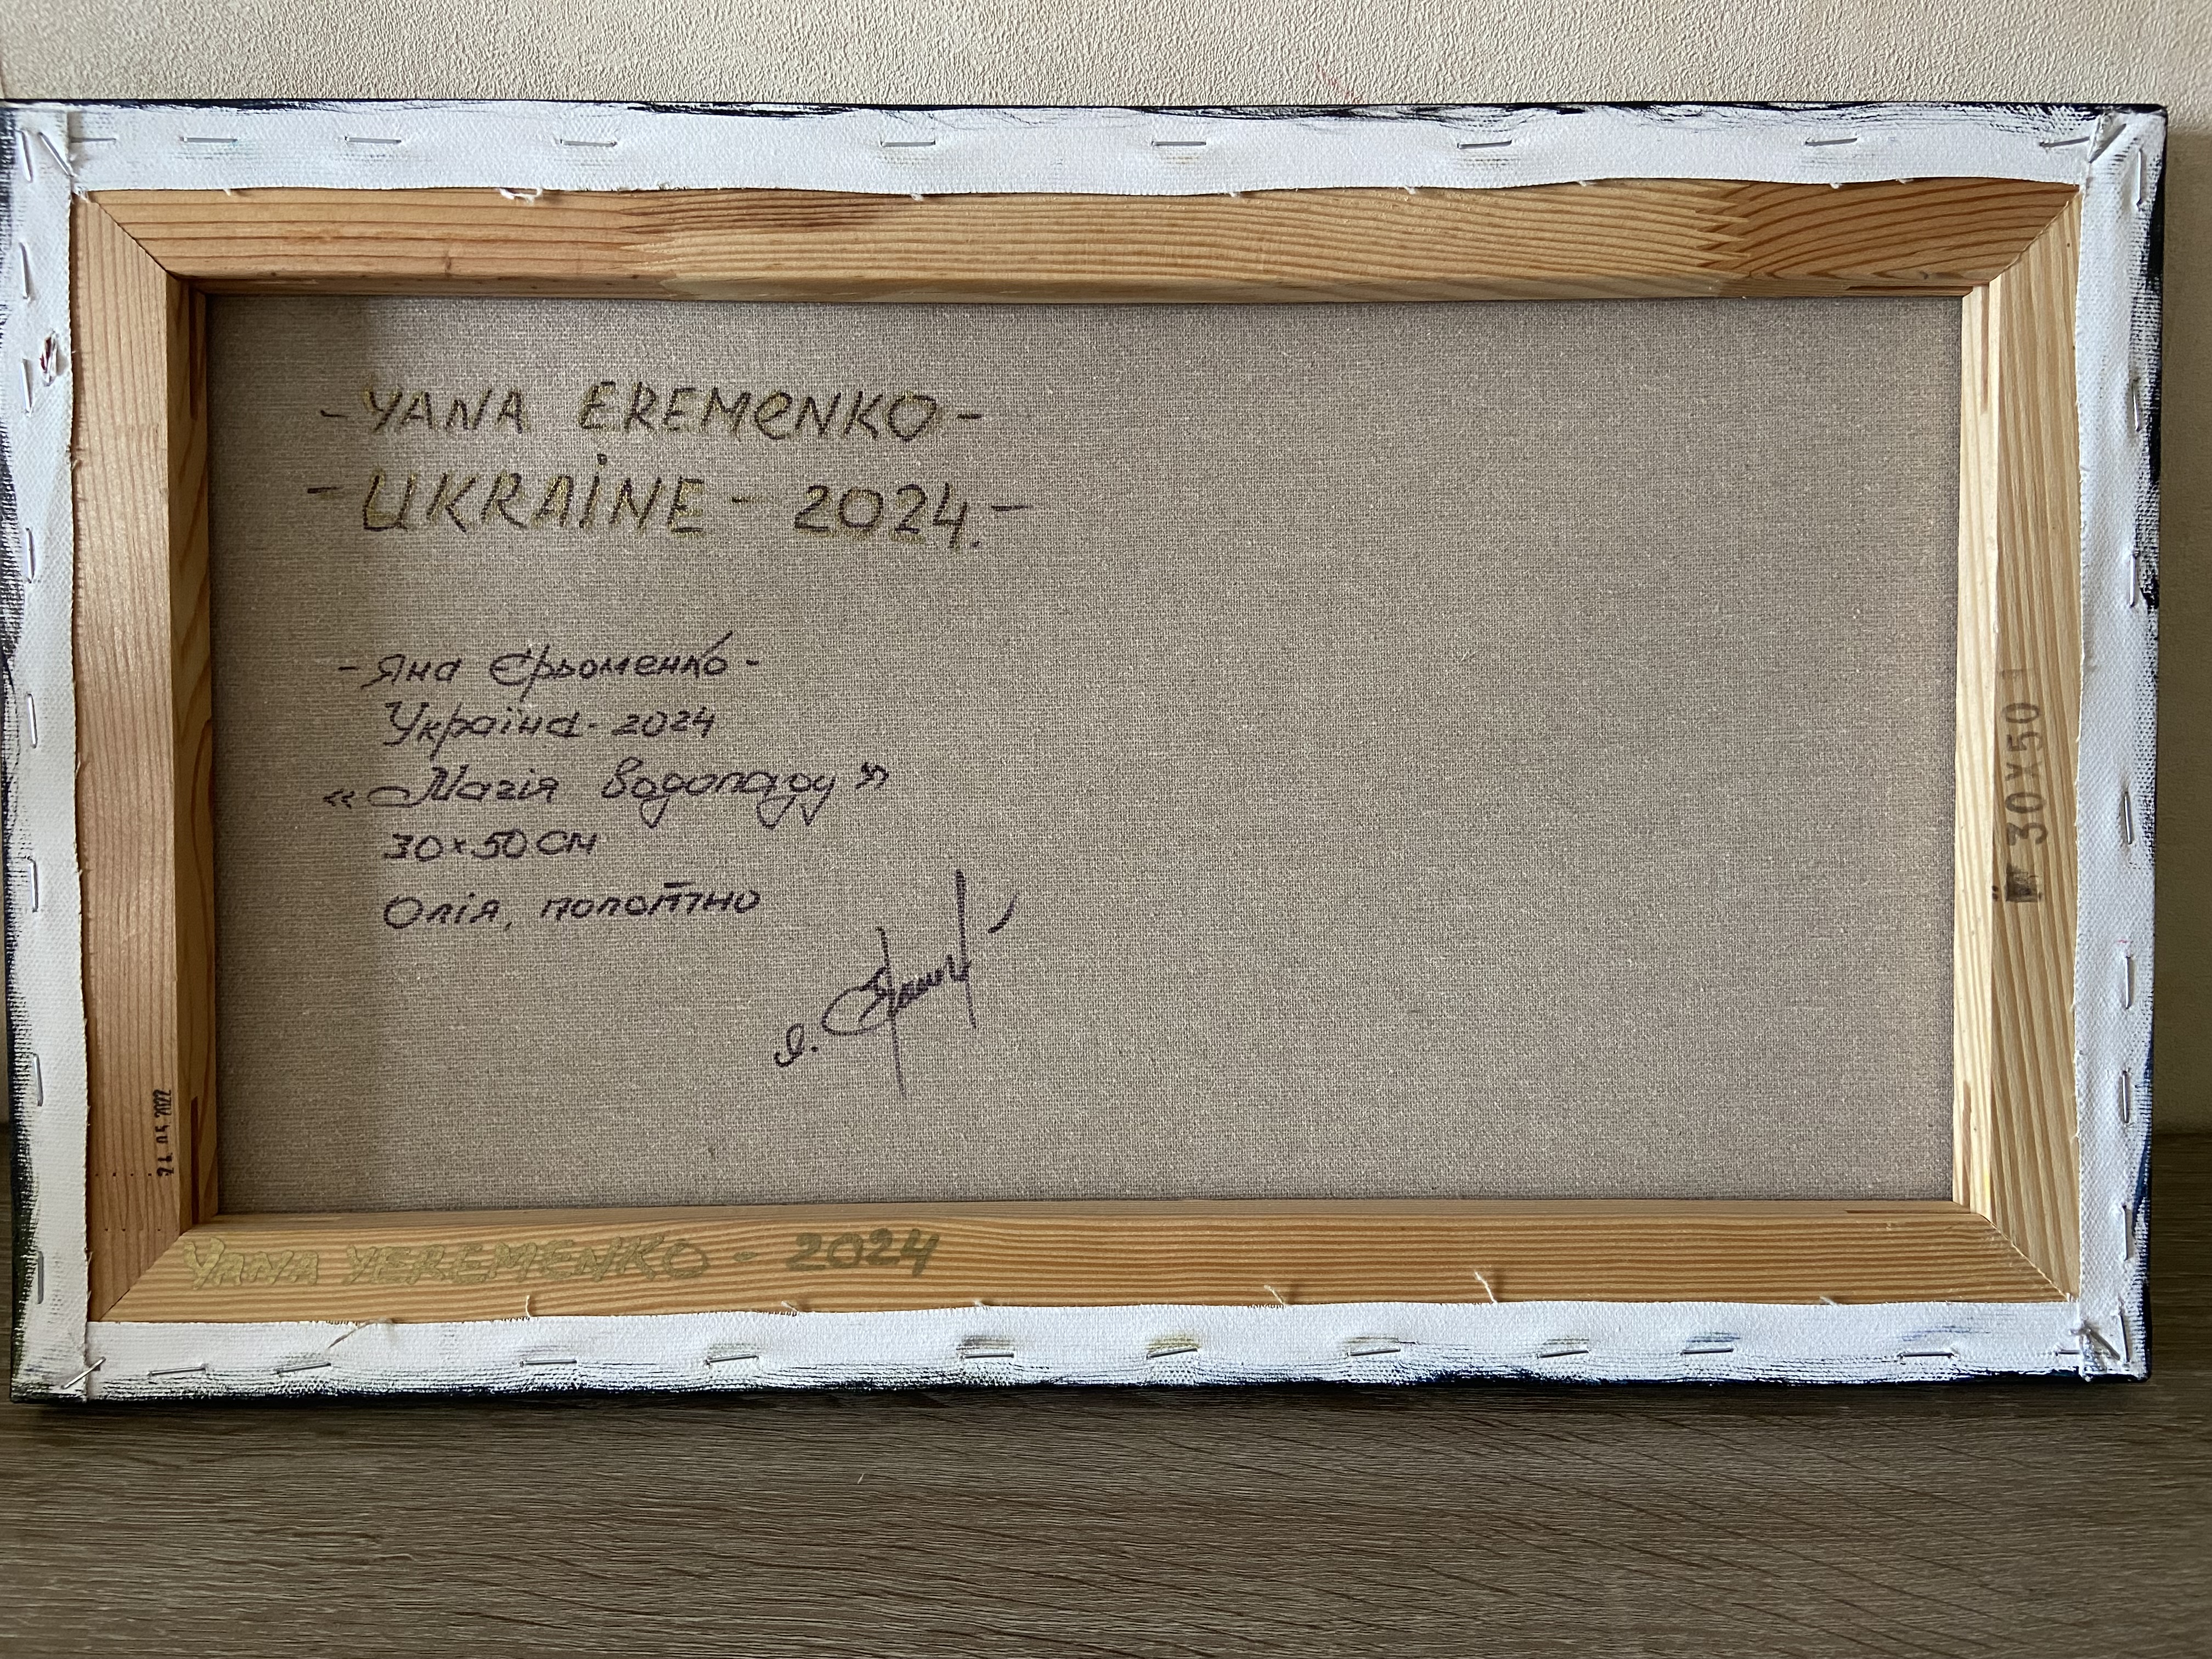 - YANA EREMENKO -
- UKRAINE - 2024. -
- Яна Єрьоменко -
Україна - 2024
« Магія водопаду »
30×50 см
Олія, полотно
30X50
YANA YEREMENKO - 2024